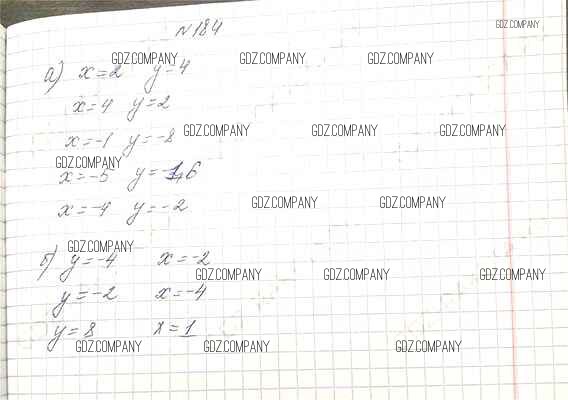 №184
GDZ.COMPANY
GDZ.COMPANY GDZ.COMPANY GDZ.COMPANY
а) x=2 y=4
x=4 y=2
x=-1 y=-8
GDZ.COMPANY GDZ.COMPANY GDZ.COMPANY
GDZ.COMPANY
x=-5 y=-1,6
x=-4 y=-2
GDZ.COMPANY GDZ.COMPANY
GDZ.COMPANY
б) y=-4 x=-2
GDZ.COMPANY GDZ.COMPANY GDZ.COMPANY
y=-2 x=-4
y=8 x=1
GDZ.COMPANY GDZ.COMPANY GDZ.COMPANY